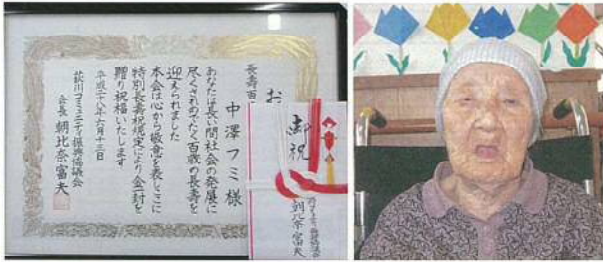 長寿百
お
中澤フミ様
あなたは長い間社会の発展に
尽くされめでたく百歳の長寿を
迎えられました
本会は心から敬意を表しここに
特別長寿祝規定により金一封を
贈り祝福いたします
平成二八年六月十三日
荻川コミュニティ振興協議会
会長 朝比奈富夫
御祝
朝比奈富夫